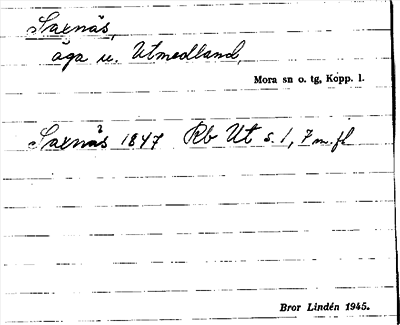 Saxnäs,
äga u. Utmedland,
Mora sn o. tg, Kopp. l.
Saxnäs 1847 Rb Ut s. 1, 7 m.fl
Bror Lindén 1945.